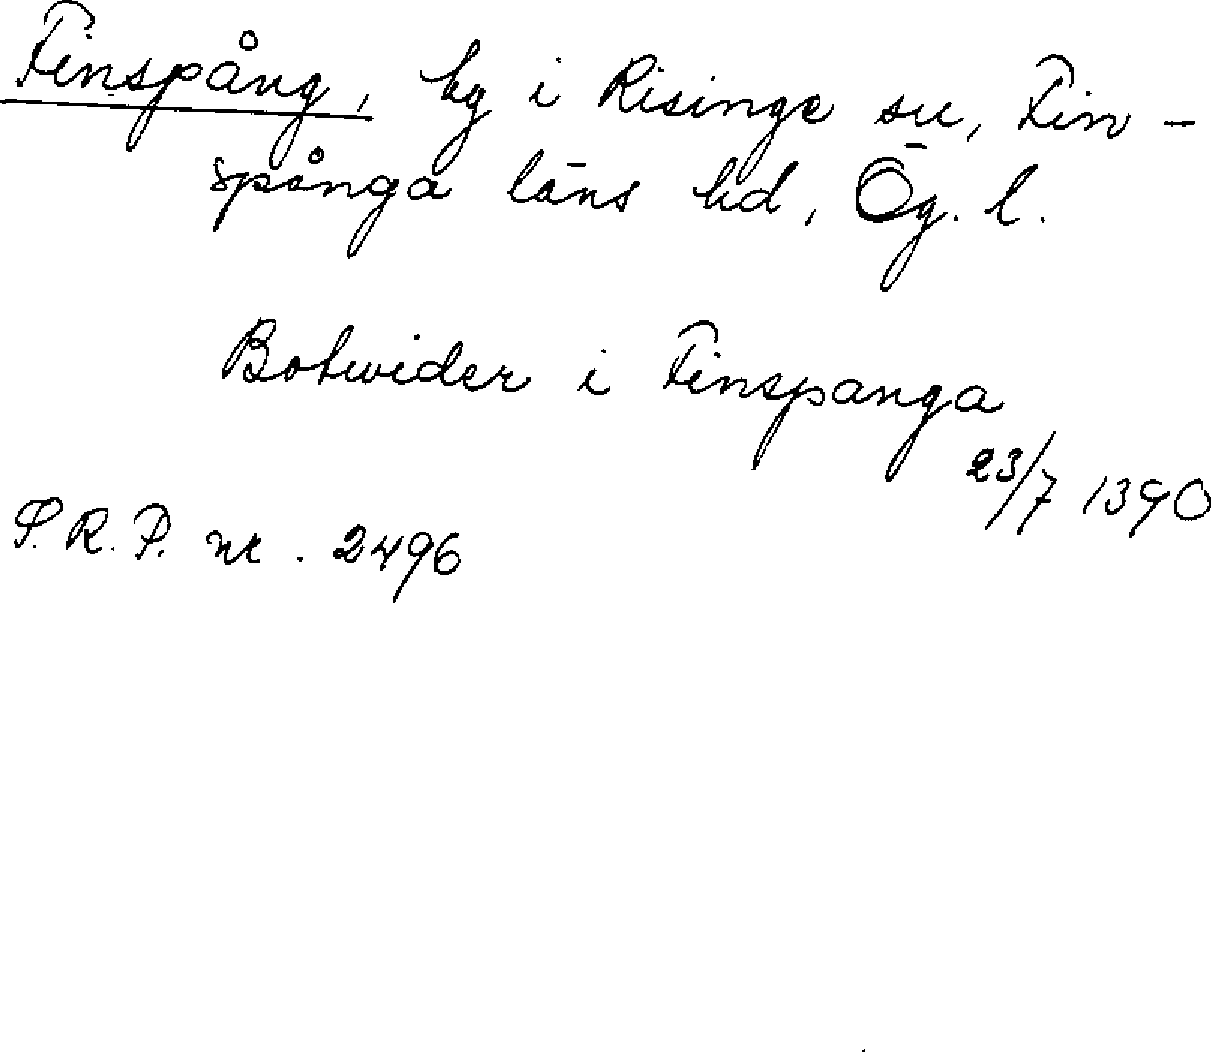 Finspång, hg i Risinge sn, Fin-
spånga läns hd, Ög. l.
Botwider i Finspanga
23/7 1390
S.R.P. nr. 2496